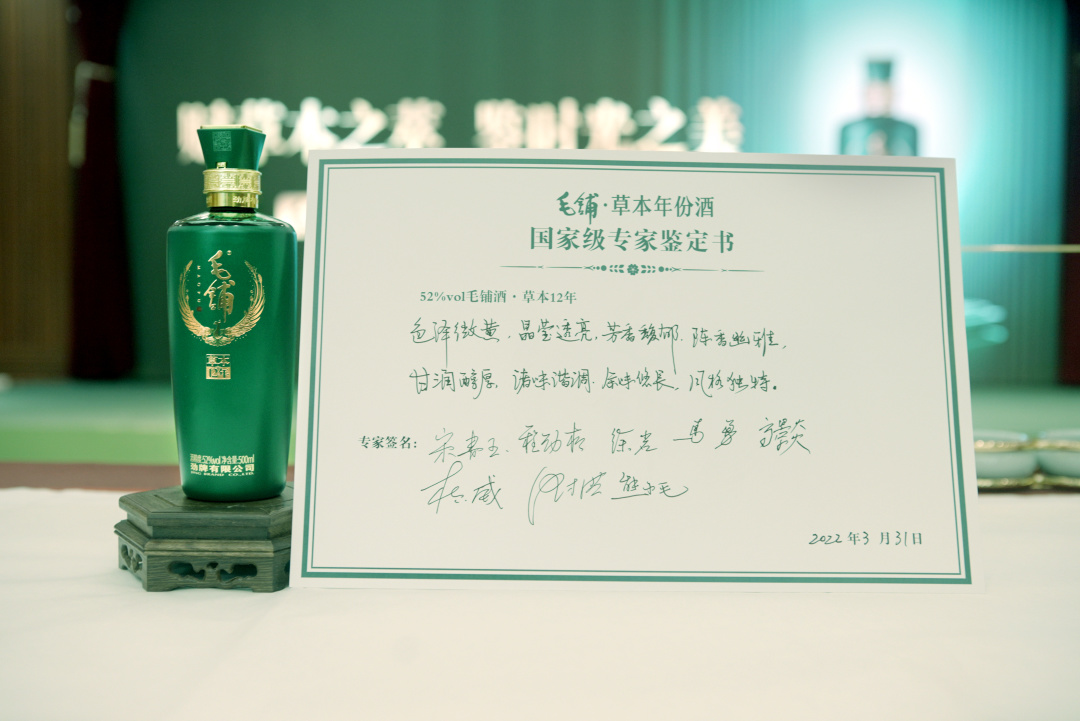 草木之萃 鉴时光之美
毛铺
草本
酒精度52%vol 净含量:500ml
劲牌有限公司
JING BRAND CO.,LTD.
毛铺·草本年份酒
国家级专家鉴定书
52%vol毛铺酒·草本12年
色泽微黄、晶莹透亮,芳香馥郁、陈香幽雅,
甘润醇厚、诸味谐调、余味悠长、风格独特。
专家签名: 宋书玉 程劲松 徐岩 马勇 高景炎
2022年3月31日